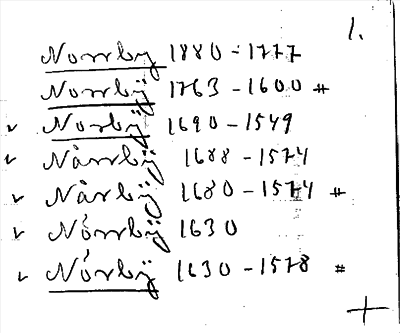 1.
Norrby 1880-1777
Norrbÿ 1763-1600 #
v Norbÿ 1690-1549
v Nårrbÿ 1688-1574
v Nårbÿ 1680-1574 #
v Nórrbÿ 1630
v Nórbÿ 1630-1578 #
+